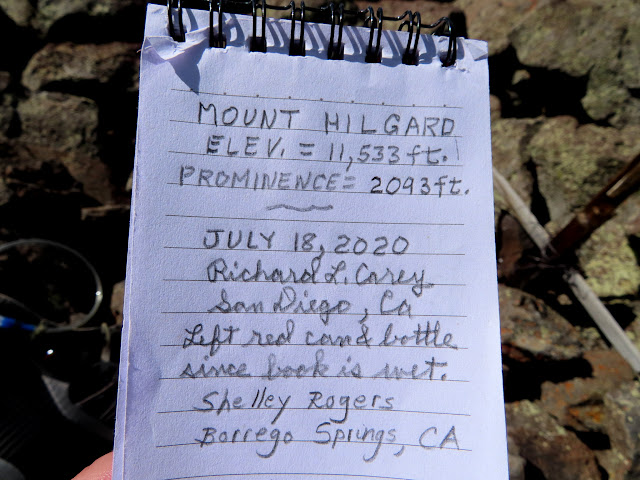 MOUNT HILGARD
ELEV. = 11,533 ft.
PROMINENCE = 2093 ft.
JULY 18, 2020
Richard L. Carey
San Diego, Ca
Left red can & bottle
since book is wet.
Shelley Rogers
Borrego Springs, CA